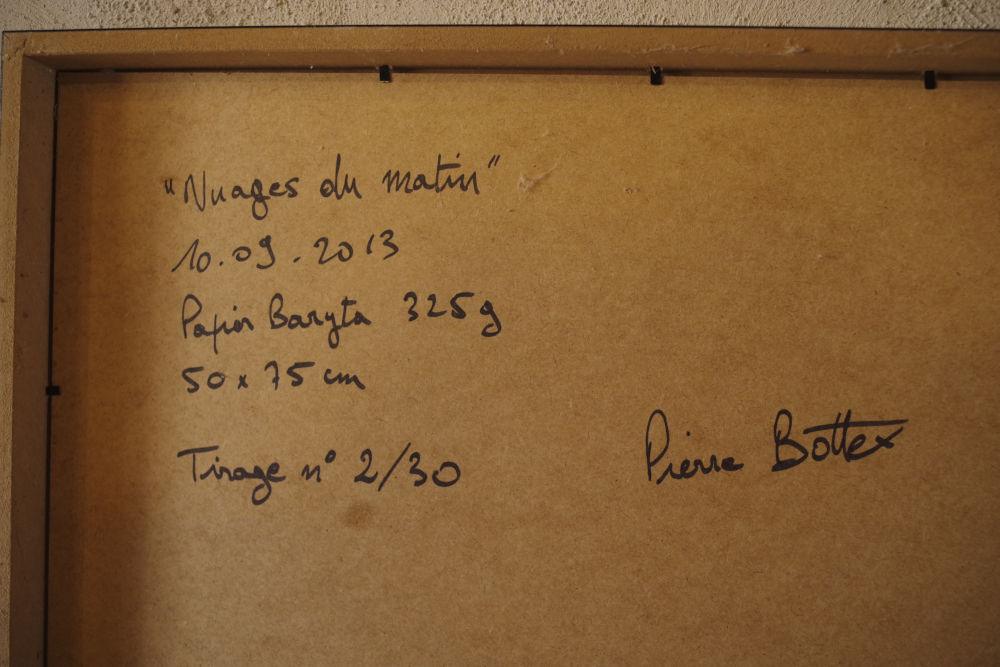 "Nuages du matin"
10.09.2013
Papier Baryta 325g
50 x 75 cm
Tirage n° 2/30
Pierre Bottex